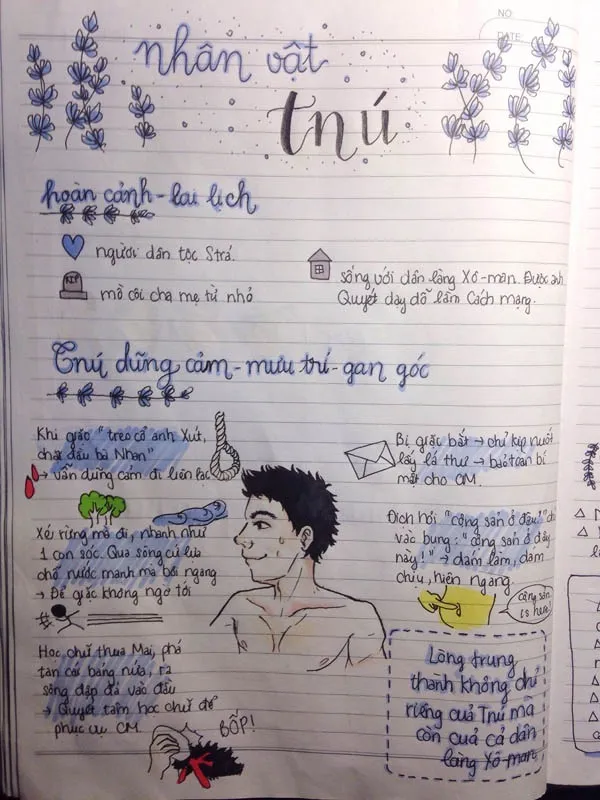 NO
DATE:
nhân vật
tnú
hoàn cảnh - lai lịch
người dân tộc Strá.
RIP
mồ côi cha mẹ từ nhỏ
sống với dân làng Xô-man. Được anh
Quyết dạy dỗ làm Cách mạng.
Tnú dũng cảm - mưu trí - gan góc
Khi giặc "treo cổ anh Xút,
chặt đầu bà Nhan"
→ vẫn dũng cảm đi liên lạc
Xé rừng mà đi, nhanh như
1 con sóc. Qua sông cứ lựa
chỗ nước mạnh mà bơi ngang
→ Để giặc không ngờ tới
Học chữ thua Mai, phá
tan cái bảng nứa, ra
sông đập đá vào đầu
→ Quyết tâm học chữ để
phục vụ CM.
BỐP!
Bị giặc bắt → chỉ kịp nuốt
lấy lá thư → bảo toàn bí
mật cho CM.
Địch hỏi "cộng sản ở đâu" chỉ
vào bụng: "cộng sản ở đây
này!" → dám làm, dám
chịu, hiên ngang.
cộng sản
is here!
Lòng trung
thành không chỉ
riêng của Tnú mà
còn của cả dân
làng Xô-man